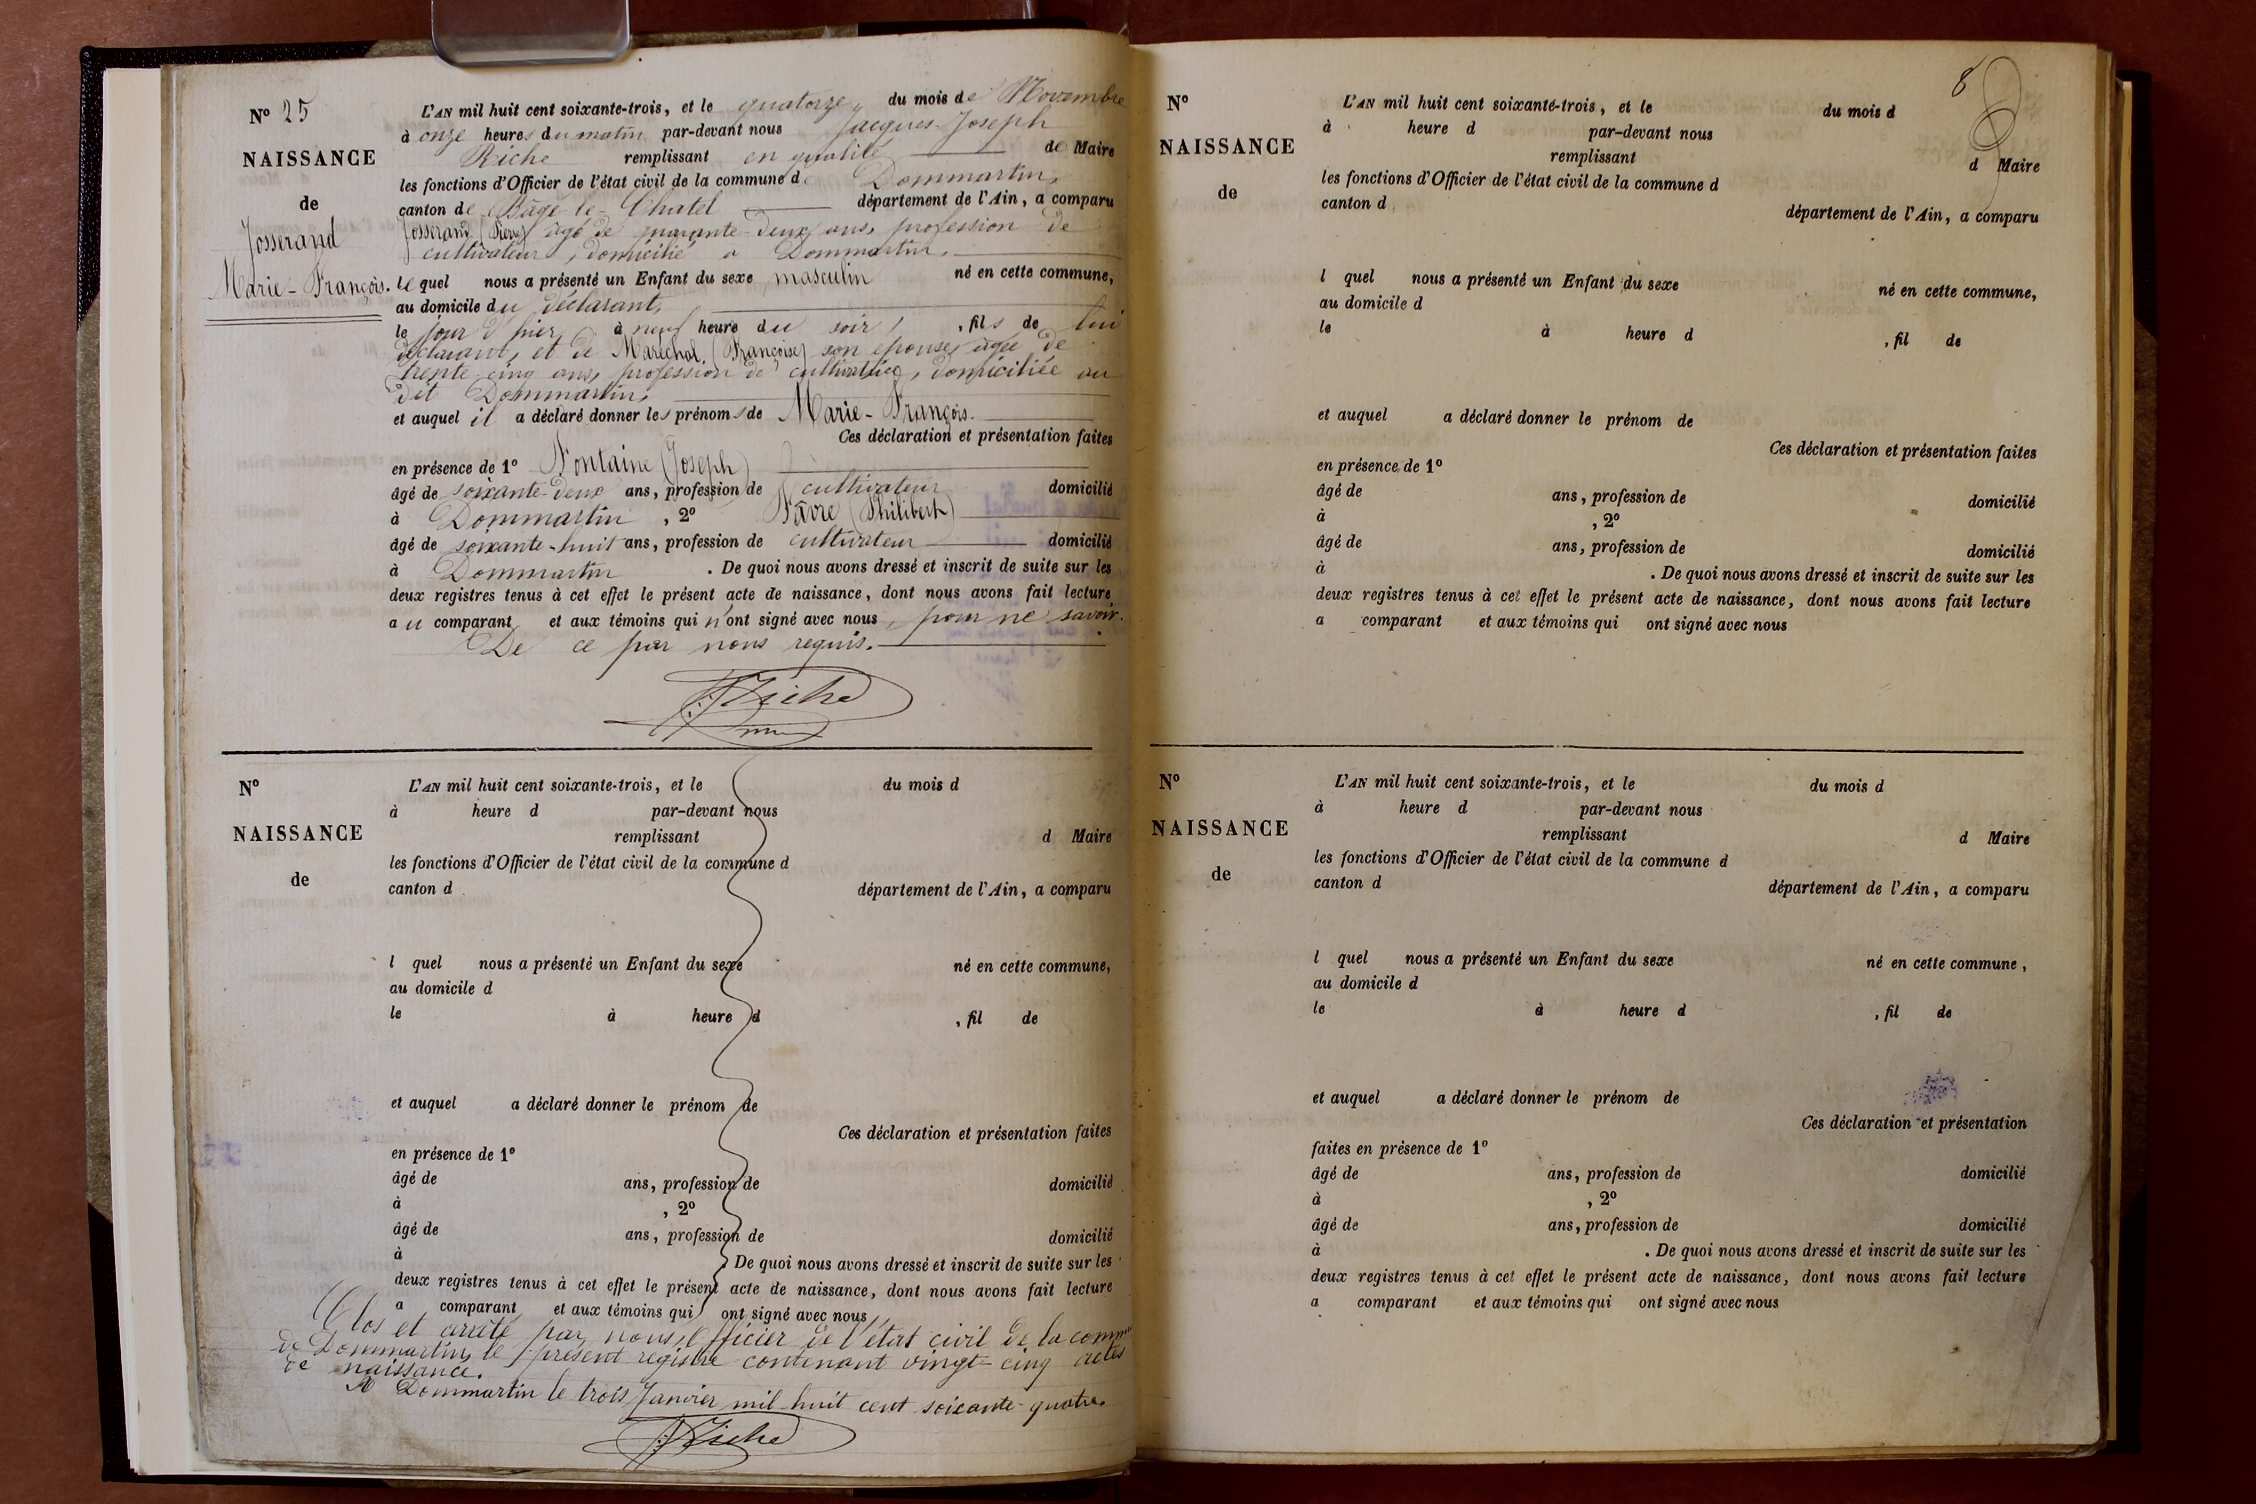 N° 25
NAISSANCE
de
Josserand
Marie-François.
L'AN mil huit cent soixante-trois, et le quatorze du mois de Novembre
à onze heures du matin par-devant nous Jacques-Joseph
Riche remplissant en qualité de Maire
les fonctions d'Officier de l'état civil de la commune d Dommartin,
canton de Bâgé-le-Chatel département de l'Ain, a comparu
Josserand (Pierre) âgé de quarante-deux ans, profession de
cultivateur, domicilié à Dommartin,
lequel nous a présenté un Enfant du sexe masculin né en cette commune,
au domicile du déclarant,
le jour d'hier à neuf heure du soir, fils de lui
déclarant, et de Maréchal (Françoise) son épouse, âgée de
trente-cinq ans, profession de cultivatrice, domiciliée au
dit Dommartin,
et auquel il a déclaré donner les prénoms de Marie-François.
Ces déclaration et présentation faites
en présence de 1° Fontaine (Joseph)
âgé de soixante-deux ans, profession de cultivateur domicilié
à Dommartin, 2° Favre (Philibert)
âgé de soixante-huit ans, profession de cultivateur domicilié
à Dommartin. De quoi nous avons dressé et inscrit de suite sur les
deux registres tenus à cet effet le présent acte de naissance, dont nous avons fait lecture
au comparant et aux témoins qui n'ont signé avec nous, pour ne savoir.
De ce par nous requis.
J: J: Riche
N°
NAISSANCE
de
L'AN mil huit cent soixante-trois, et le du mois d
à heure d par-devant nous
remplissant d Maire
les fonctions d'Officier de l'état civil de la commune d
canton d département de l'Ain, a comparu
l quel nous a présenté un Enfant du sexe né en cette commune,
au domicile d
le à heure d , fil de
et auquel a déclaré donner le prénom de
Ces déclaration et présentation faites
en présence de 1°
âgé de ans, profession de domicilié
à , 2°
âgé de ans, profession de domicilié
à . De quoi nous avons dressé et inscrit de suite sur les
deux registres tenus à cet effet le présent acte de naissance, dont nous avons fait lecture
a comparant et aux témoins qui ont signé avec nous
Clos et arrêté par nous, officier de l'état civil de la comm
de Dommartin, le présent registre contenant vingt-cinq actes
de naissance.
A Dommartin le trois Janvier mil-huit cent soixante-quatre.
J: J: Riche
8
N°
NAISSANCE
de
L'AN mil huit cent soixante-trois, et le du mois d
à heure d par-devant nous
remplissant d Maire
les fonctions d'Officier de l'état civil de la commune d
canton d département de l'Ain, a comparu
l quel nous a présenté un Enfant du sexe né en cette commune,
au domicile d
le à heure d , fil de
et auquel a déclaré donner le prénom de
Ces déclaration et présentation faites
en présence de 1°
âgé de ans, profession de domicilié
à , 2°
âgé de ans, profession de domicilié
à . De quoi nous avons dressé et inscrit de suite sur les
deux registres tenus à cet effet le présent acte de naissance, dont nous avons fait lecture
a comparant et aux témoins qui ont signé avec nous
N°
NAISSANCE
de
L'AN mil huit cent soixante-trois, et le du mois d
à heure d par-devant nous
remplissant d Maire
les fonctions d'Officier de l'état civil de la commune d
canton d département de l'Ain, a comparu
l quel nous a présenté un Enfant du sexe né en cette commune,
au domicile d
le à heure d , fil de
et auquel a déclaré donner le prénom de
Ces déclaration et présentation
faites en présence de 1°
âgé de ans, profession de domicilié
à , 2°
âgé de ans, profession de domicilié
à . De quoi nous avons dressé et inscrit de suite sur les
deux registres tenus à cet effet le présent acte de naissance, dont nous avons fait lecture
a comparant et aux témoins qui ont signé avec nous